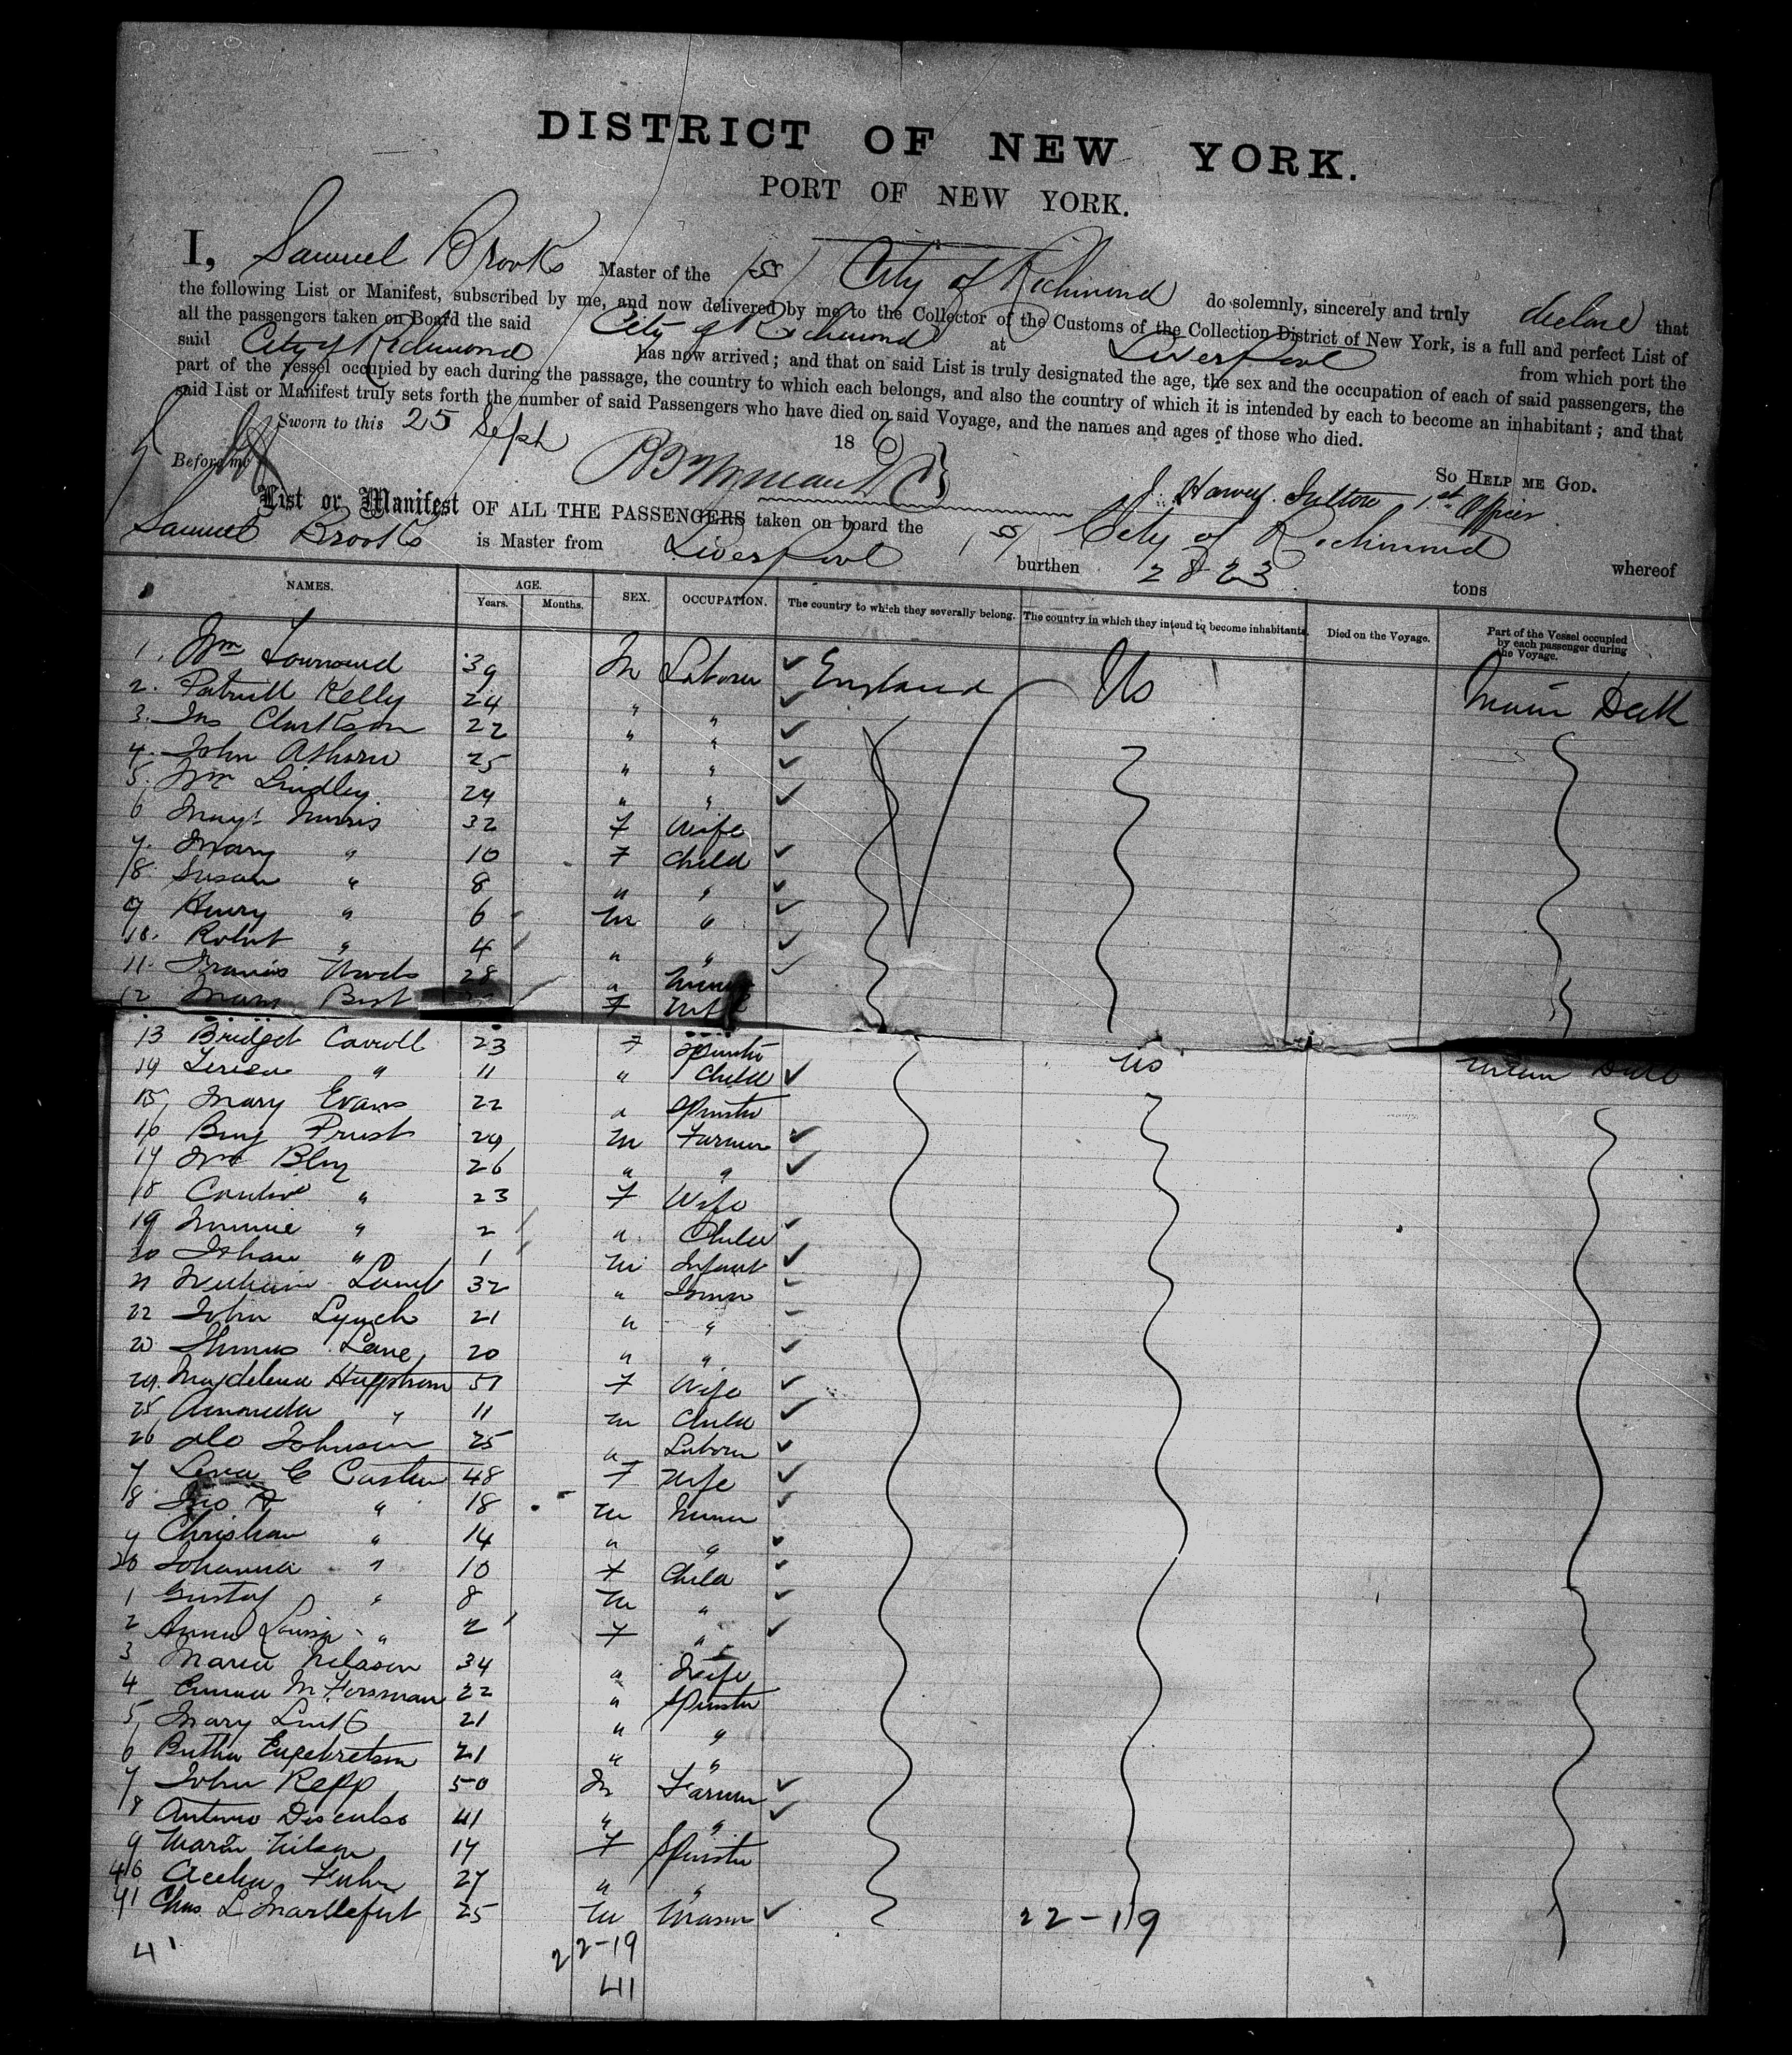 DISTRICT OF NEW YORK.
PORT OF NEW YORK.
I, Samuel Brooks Master of the SS City of Richmond do solemnly, sincerely and truly declare that
the following List or Manifest, subscribed by me, and now delivered by me to the Collector of the Customs of the Collection District of New York, is a full and perfect List of
all the passengers taken on Board the said City of Richmond at Liverpool from which port the
said City of Richmond has now arrived; and that on said List is truly designated the age, the sex and the occupation of each of said passengers, the
part of the vessel occupied by each during the passage, the country to which each belongs, and also the country of which it is intended by each to become an inhabitant; and that
said List or Manifest truly sets forth the number of said Passengers who have died on said Voyage, and the names and ages of those who died.
Sworn to this 25 Sept 186
So Help me God.
Before me
J. Harvey 1st Officer
List or Manifest OF ALL THE PASSENGERS taken on board the SS City of Richmond whereof
Samuel Brooks is Master from Liverpool burthen 2823 tons
NAMES. AGE. Years. Months. SEX. OCCUPATION. The country to which they severally belong. The country in which they intend to become inhabitants. Died on the Voyage. Part of the Vessel occupied by each passenger during the Voyage.
1. Wm Townsend 39 M Laborer England US Main Deck
2. Patrick Kelly 24 " "
3. Jno Clarkson 22 " "
4. John 25 " "
5. Wm Lindley 24 " "
6 Norris 32 F Wife
7. Mary " 10 F Child
8 Susan " 8 " "
9 Henry " 6 M "
10. Robert " 4 " "
11. Francis Woods 28 "
12 Best F Wife
13 Bridget Carroll 23 F Spinster US Main Deck
14 Teresa " 11 " Child
15, Mary Evans 22 " Spinster
16 Benj Prust 24 M Farmer
17 Wm 26 " "
18 Caroline " 23 F Wife
19 Minnie " 2 " Child
20 " 1 M Infant
21 William 32 "
22 John Lynch 21 " "
23 Thomas Lane 20 " "
24. Magdelena Hagstrom 51 F Wife
25, " 11 M Child
26 Johnson 25 " Laborer
7 48 F Wife
8 Jno A " 18 M
9 Christian " 14 " "
30 Johanna " 10 F Child
1 Gustaf " 8 M "
2 Anna Louisa " 2 F "
3 Maria Nelsson 34 " Wife
4 Emma M Forsman 22 " Spinster
5, Mary 21 " "
6 Engebretson 21 " "
7 John Repp 50 M Farmer
8 Antonio 41 " "
9 Maria Nilson 17 F Spinster
40 27 " "
41 Chas L 25 M Mason
22-19
41 22-19
41